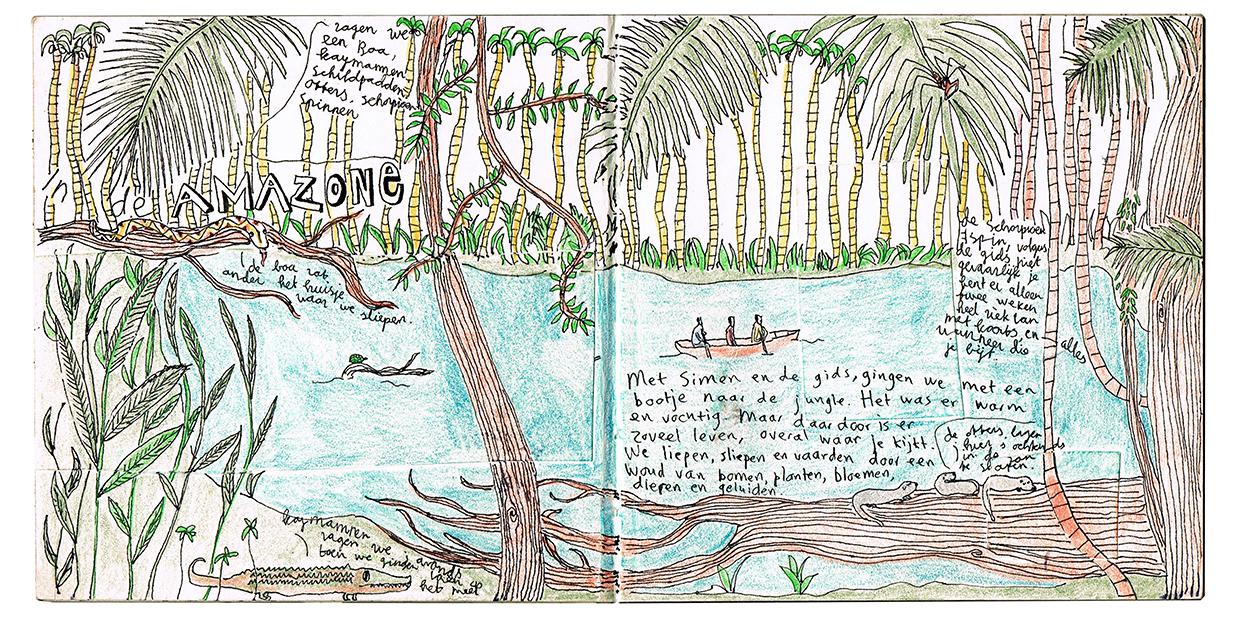 zagen we
een Boa,
kaymannen
schildpadden
otters, schorpioen
spinnen
in de AMAZONE
de boa zat
onder het huisje
waar we sliepen.
de schorpioen
spin volgens
de gids niet
gevaarlijk je
bent er alleen
twee weken
heel ziek van
met koorts en alles
wanneer die
je bijt.
Met Simen en de gids, gingen we met een
bootje naar de jungle. Het was er warm
en vochtig. Maar daardoor is er
zoveel leven, overal waar je kijkt.
We liepen, sliepen en vaarden door een
woud van bomen, planten, bloemen,
dieren en geluiden.
de otters liggen
hier 's ochtends
in de zon
te slapen.
kaymannen
zagen we
toen we gingen
varen 's avonds
het meer